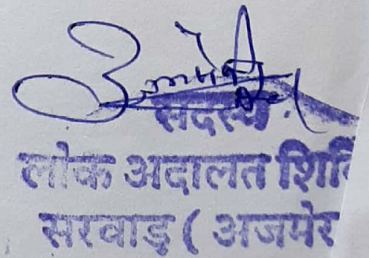 सदस्य
लोक अदालत शिवि
सरवाड़ ( अजमेर